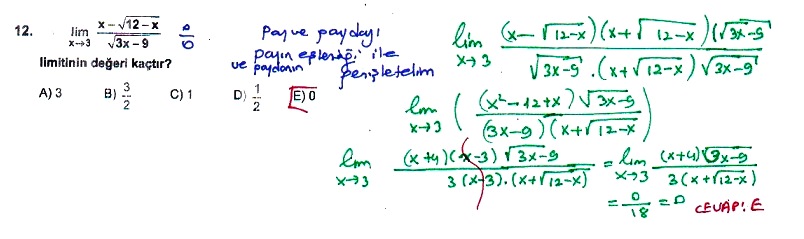 12. lim x→3 (x-√(12-x))/√(3x-9) 0/0
limitinin değeri kaçtır?
A) 3 B) 3/2 C) 1 D) 1/2 E) 0
Pay ve paydayı
payın eşleniği ile
ve paydanın
genişletelim
lim x→3 ((x-√(12-x))(x+√(12-x))(√(3x-9)))/(√(3x-9).(x+√(12-x))√(3x-9))
lim x→3 (((x²-12+x)√(3x-9))/((3x-9)(x+√(12-x))))
lim x→3 ((x+4)(x-3)√(3x-9))/(3(x-3).(x+√(12-x))) = lim x→3 ((x+4)√(3x-9))/(3(x+√(12-x)))
= 0/18 = 0 CEVAP: E